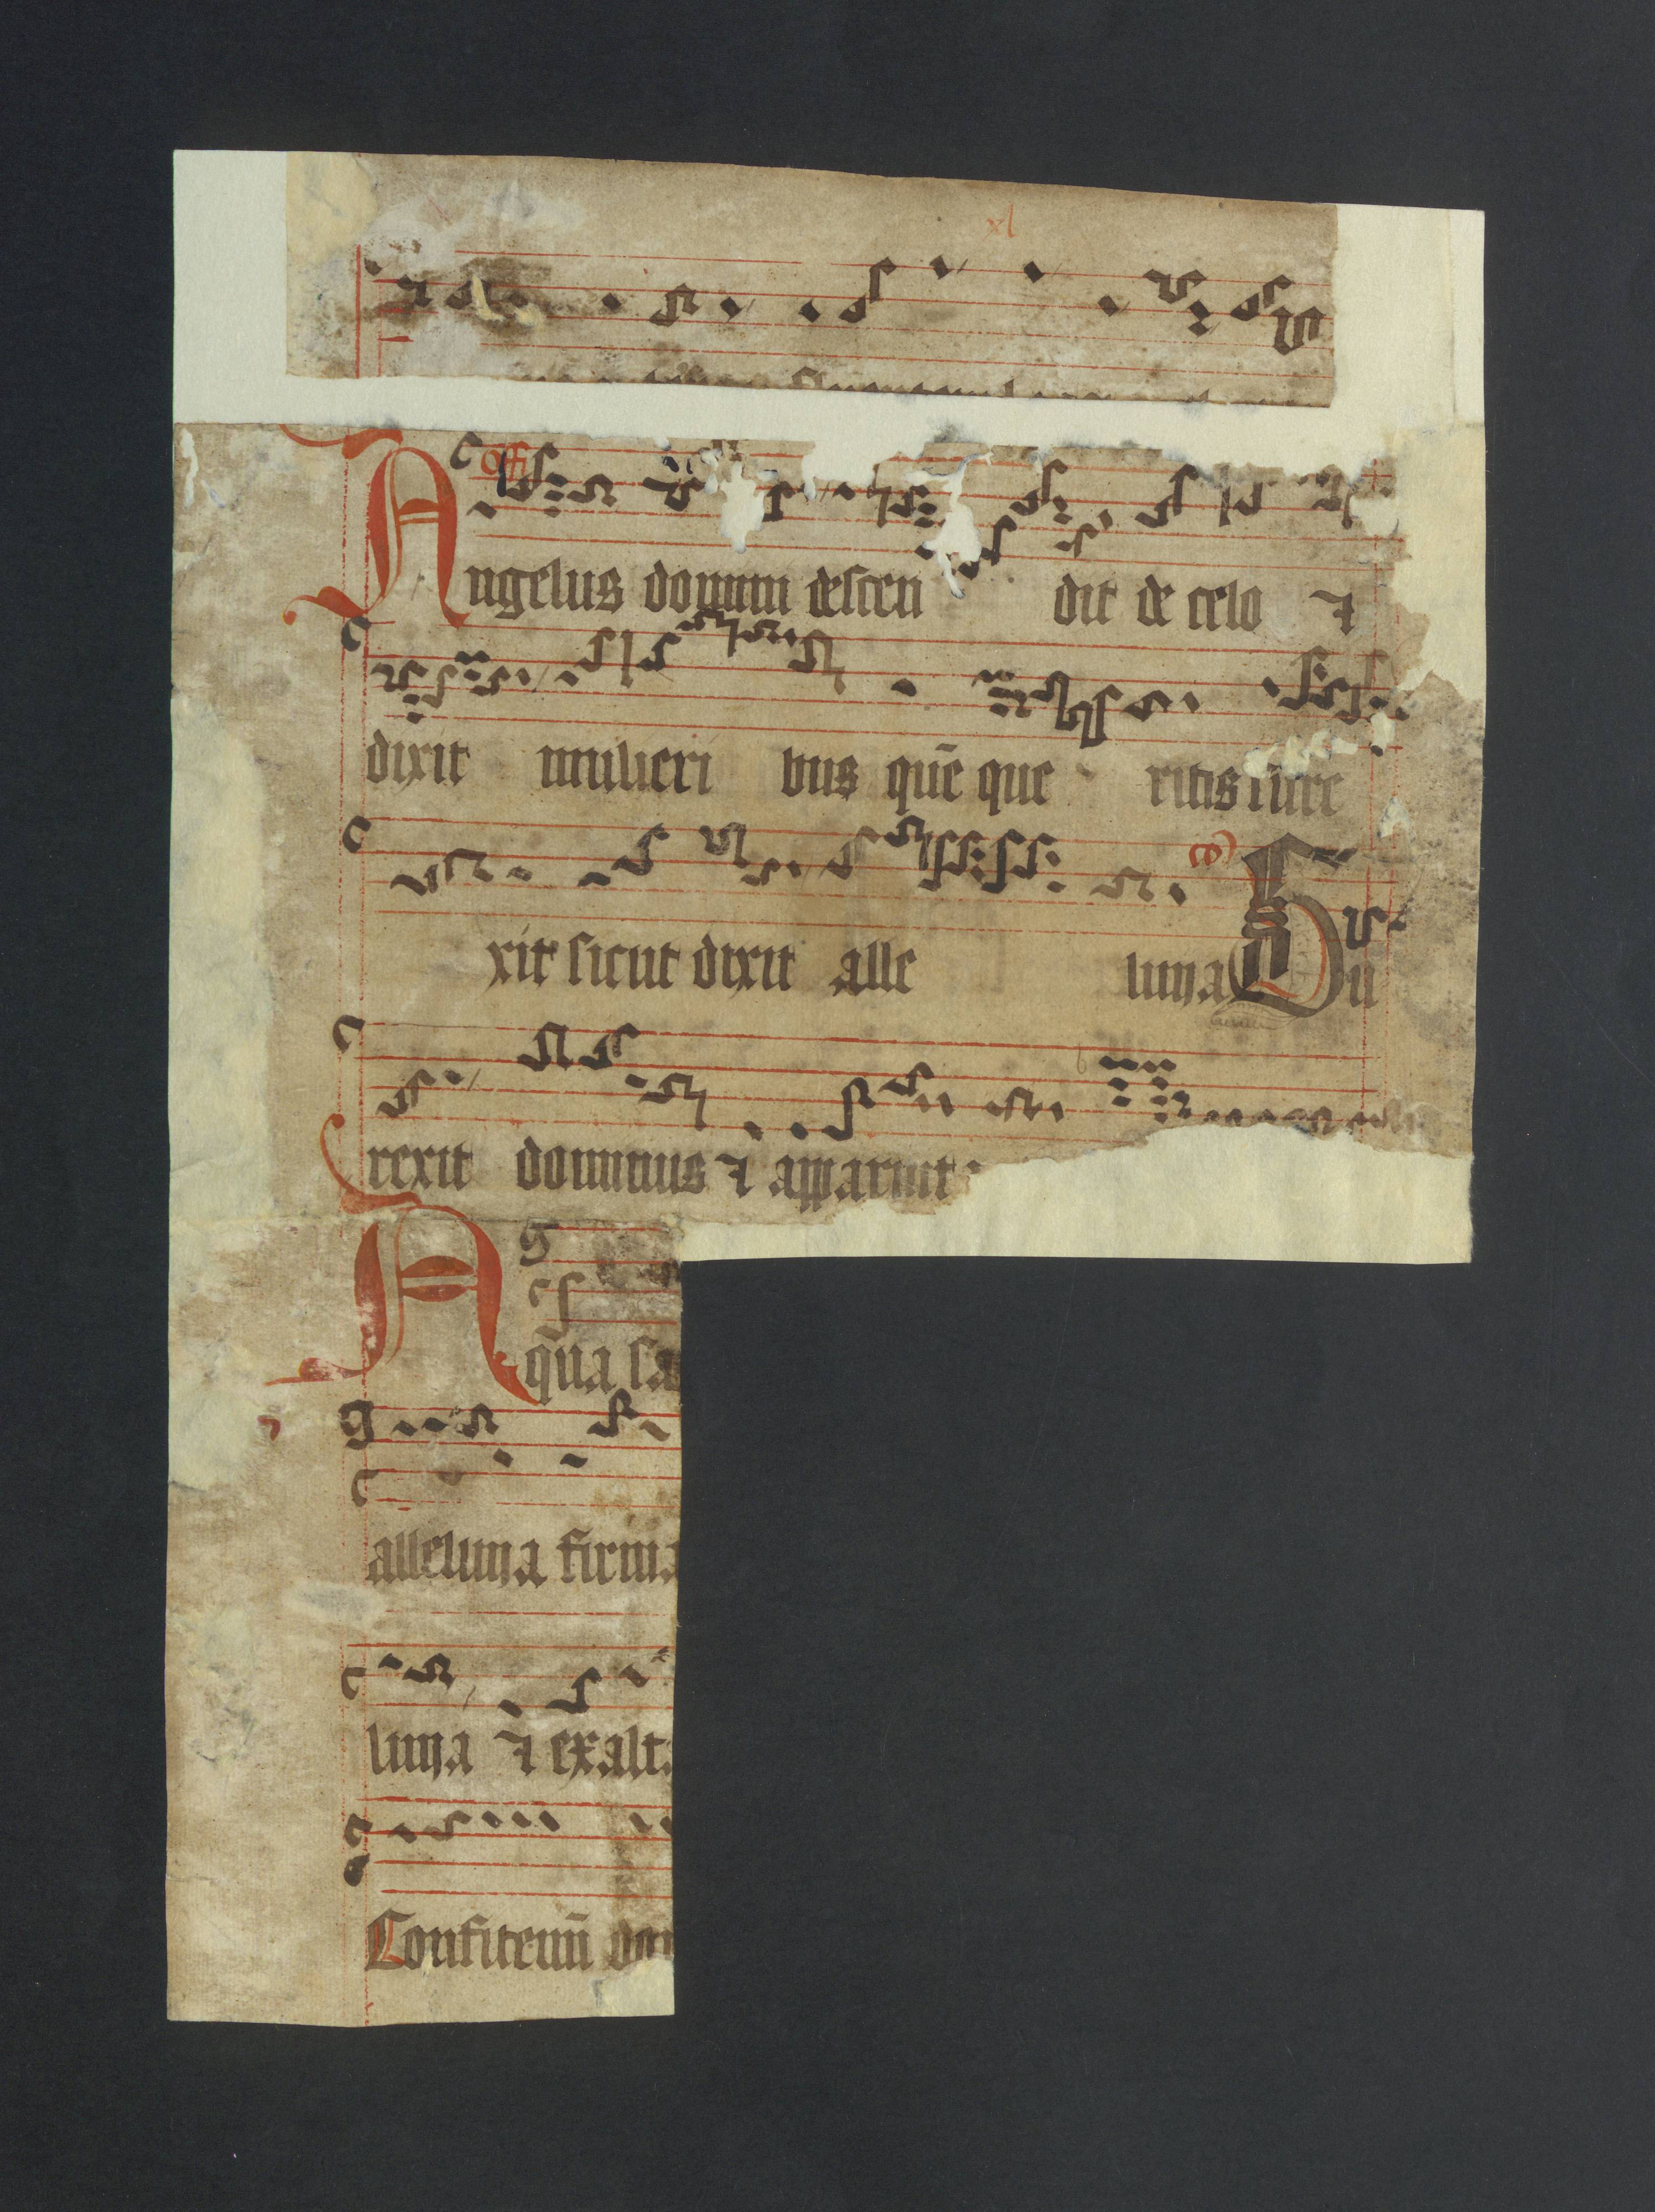 xl
offi
Angelus domini descen dit de celo ⁊
dixit mulieri bus quē que ritis surre
co
xit sicut dixit alle luya Su
rexit dominus ⁊ apparuit
Aqūa sa
alleluya firma
luya ⁊ exalt
Confitemī do